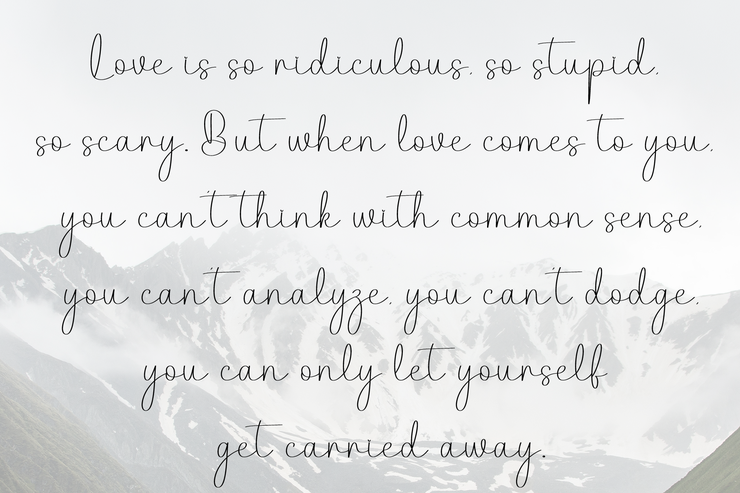 Love is so ridiculous, so stupid,
so scary. But when love comes to you,
you can't think with common sense,
you can't analyze, you can't dodge,
you can only let yourself
get carried away.